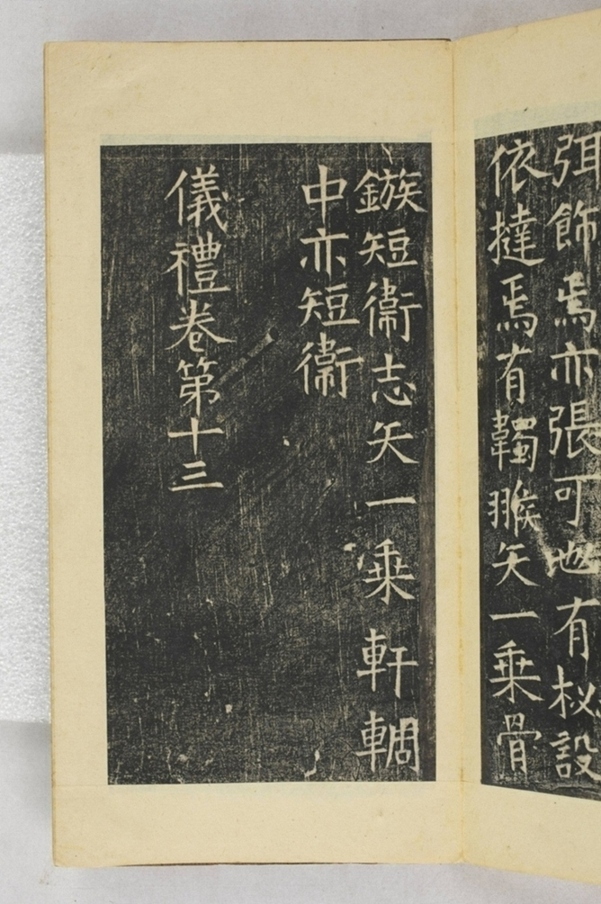 弭飾焉亦張可也有柲設
依撻焉有韣翭矢一乗骨
鏃短衞志矢一乗軒輖
中亦短衞
儀禮卷第十三